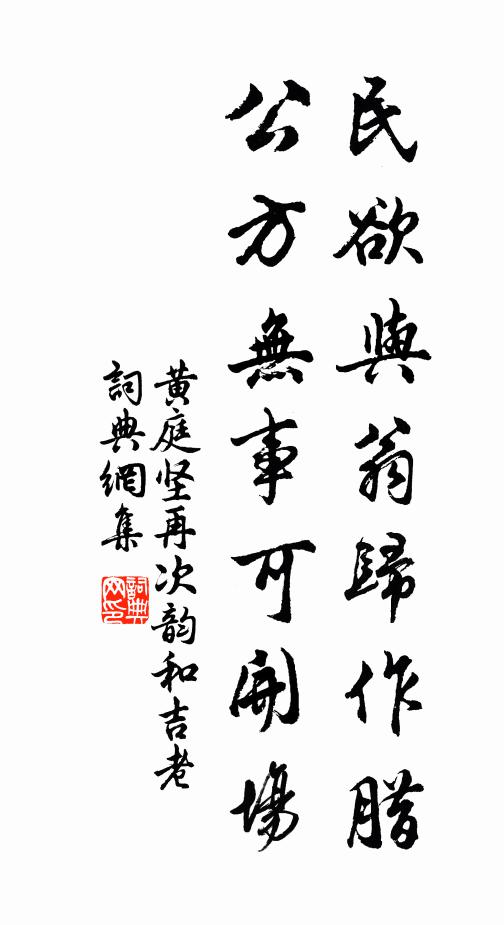 民欲與翁歸作腊
公方無事可開場
黄庭坚再次韵和吉老
詞典網集
詞典網印